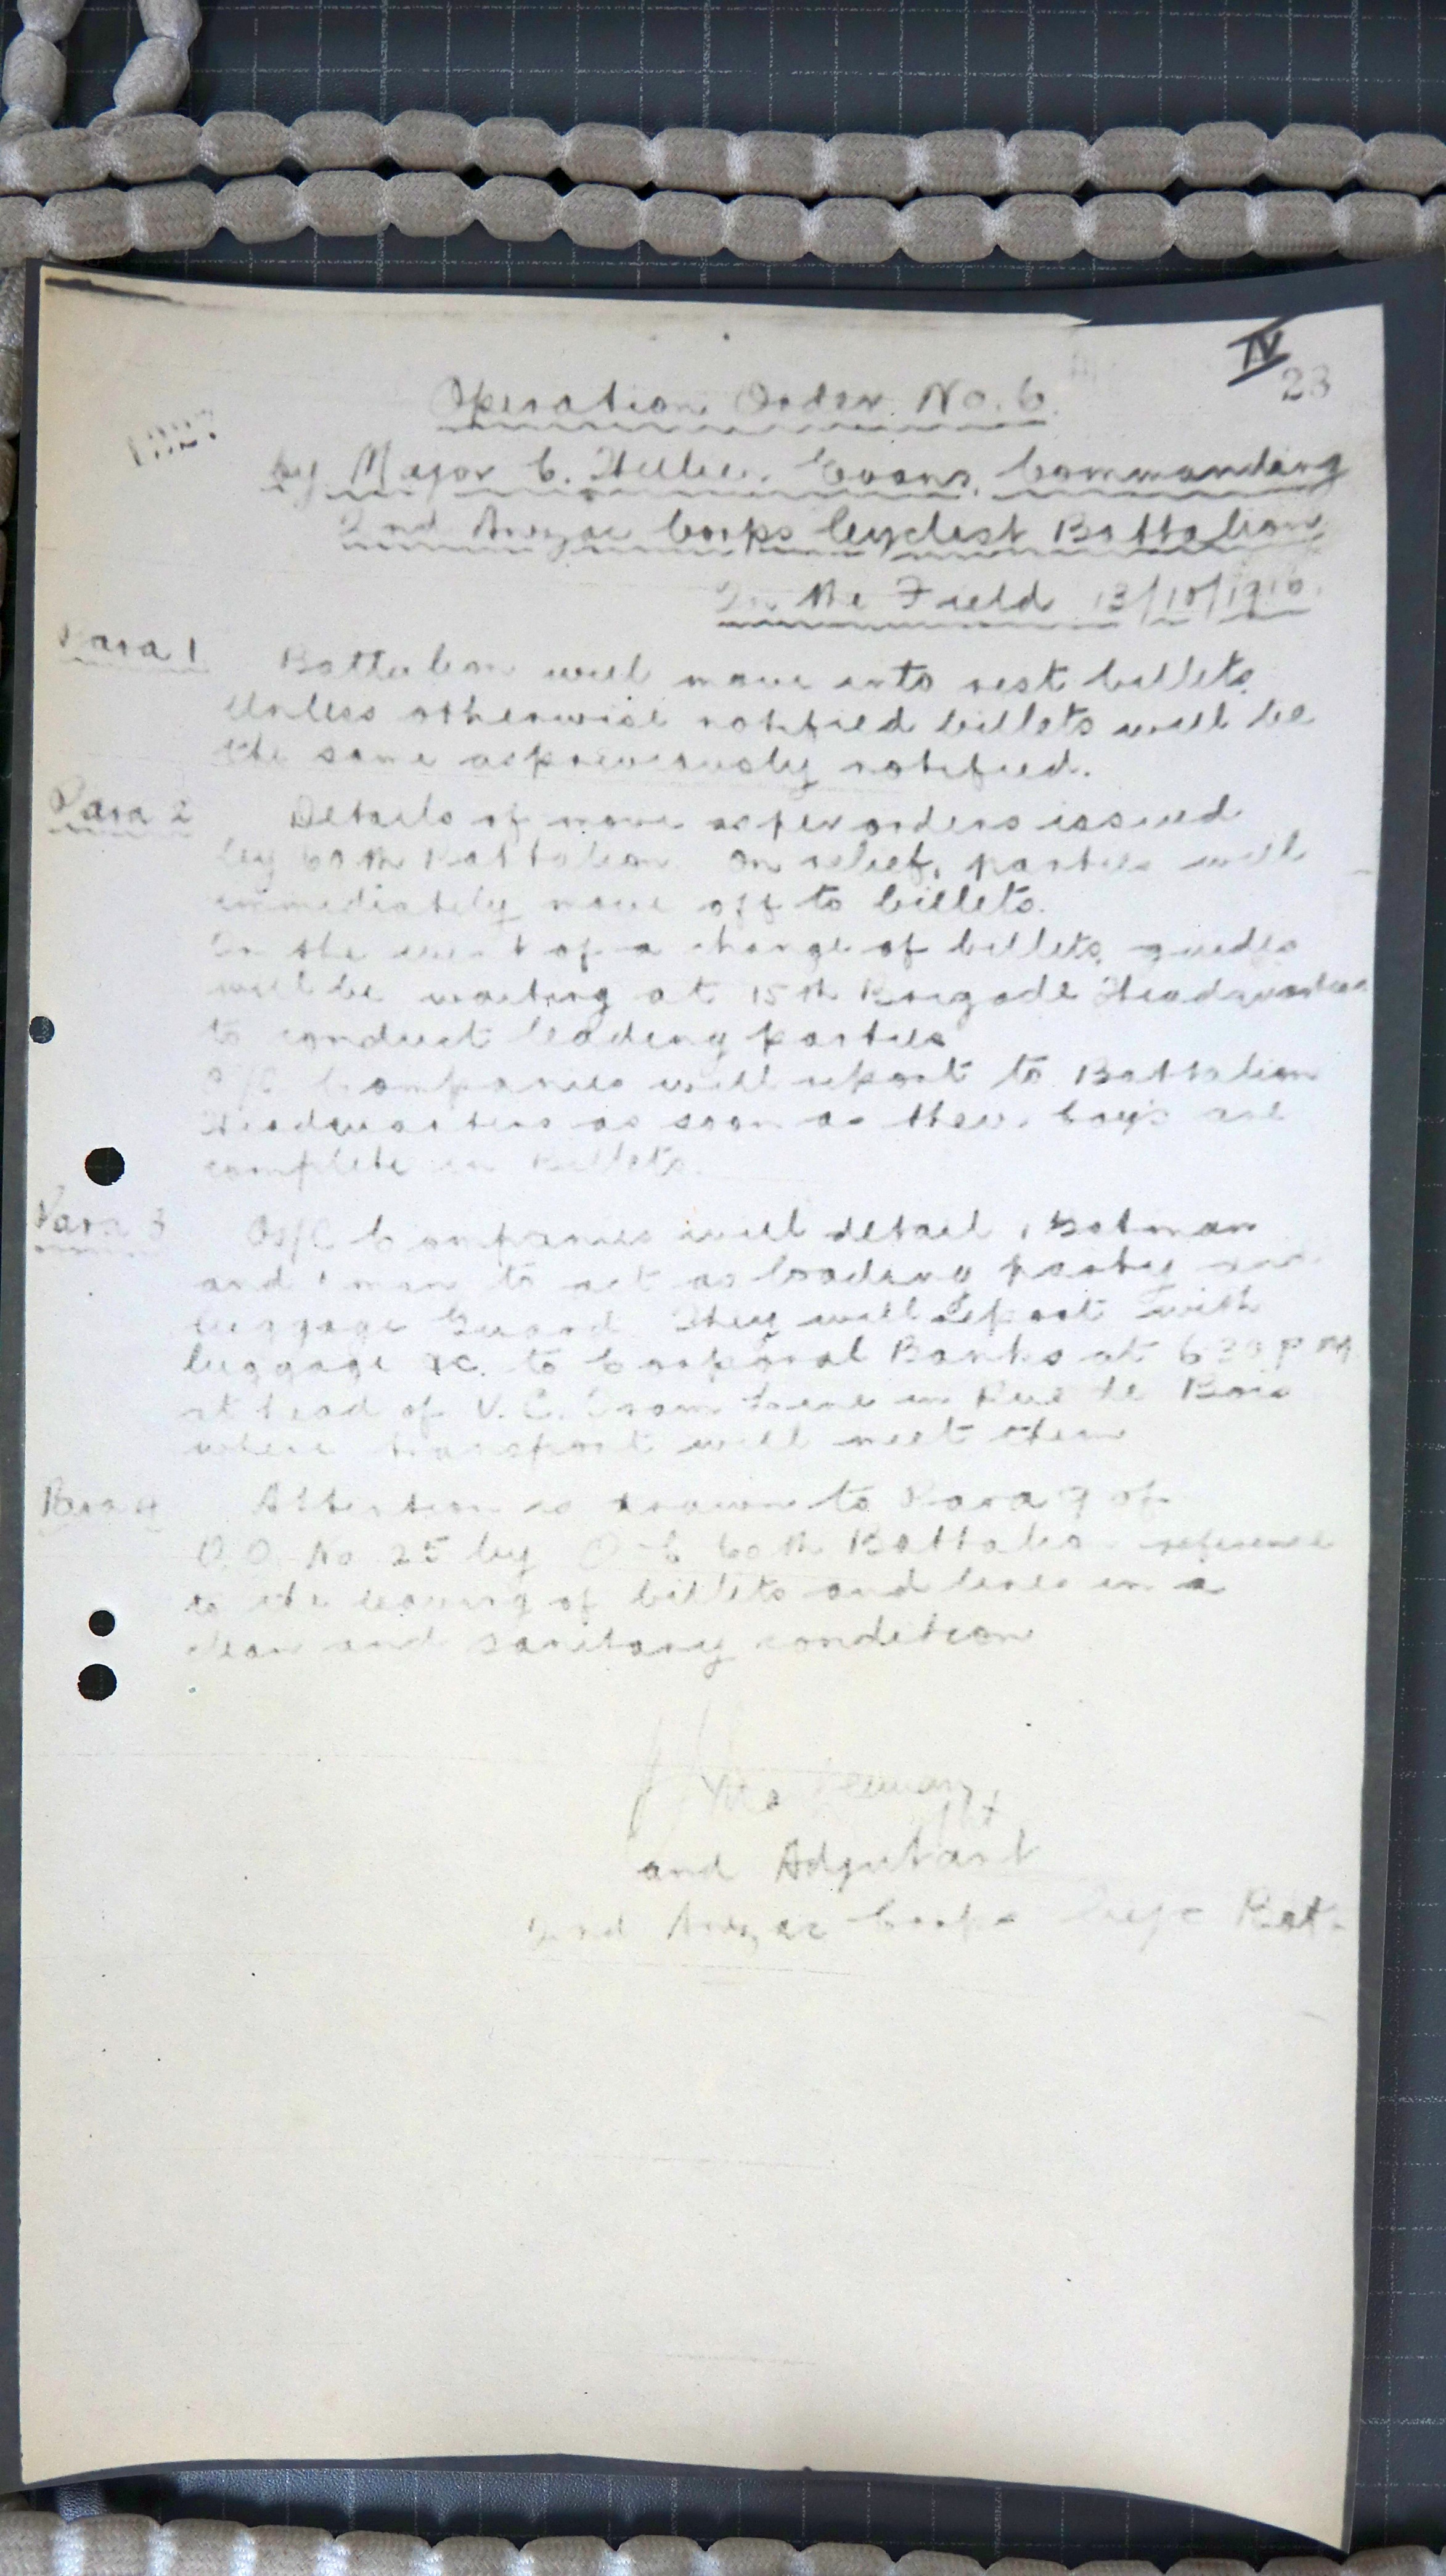 IV
23
Operation Order No. 6.
by Major C. Hellier Evans, Commanding
2nd Anzac Corps Cyclist Battalion
In the Field 13/10/1916.
Para 1 Battalion will move into rest billets.
Unless otherwise notified billets will be
the same as previously notified.
Para 2 Details of move as per orders issued
by 60th Battalion. On relief, parties will
immediately move off to billets.
In the event of a change of billets, guides
will be waiting at 15th Brigade Headquarters
to conduct leading parties
O/C Companies will report to Battalion
Headquarters as soon as their Coys are
complete in Billets.
Para 3 Os/C Companies will detail 1 Batman
and 1 man to act as loading party and
luggage Guard They will report with
luggage &c. to Corporal Banks at 6 30 P M
at head of V.C. Tram Line in Rue de Bois
where transport will meet them
Para 4 Attention is drawn to Para 9 of
O.O. No 25 by O C 60th Battalion reference
to the leaving of billets and lines in a
clean and sanitary condition
Lt
and Adjutant
2nd Anzac Corps Cyc Bat.